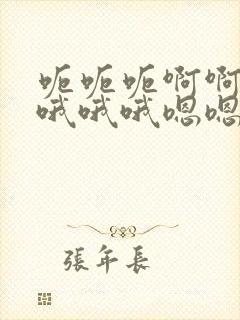 呃呃呃啊啊
哦哦哦嗯嗯
張年長